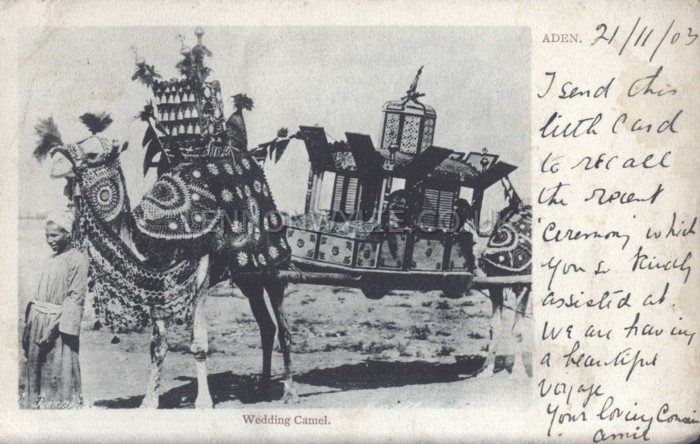 ADEN. 21/11/03
I send this
little Card
to recall
the recent
"Ceremony" which
you so kindly
assisted at
We are having
a beautiful
voyage
Your loving Cousin
Wedding Camel.